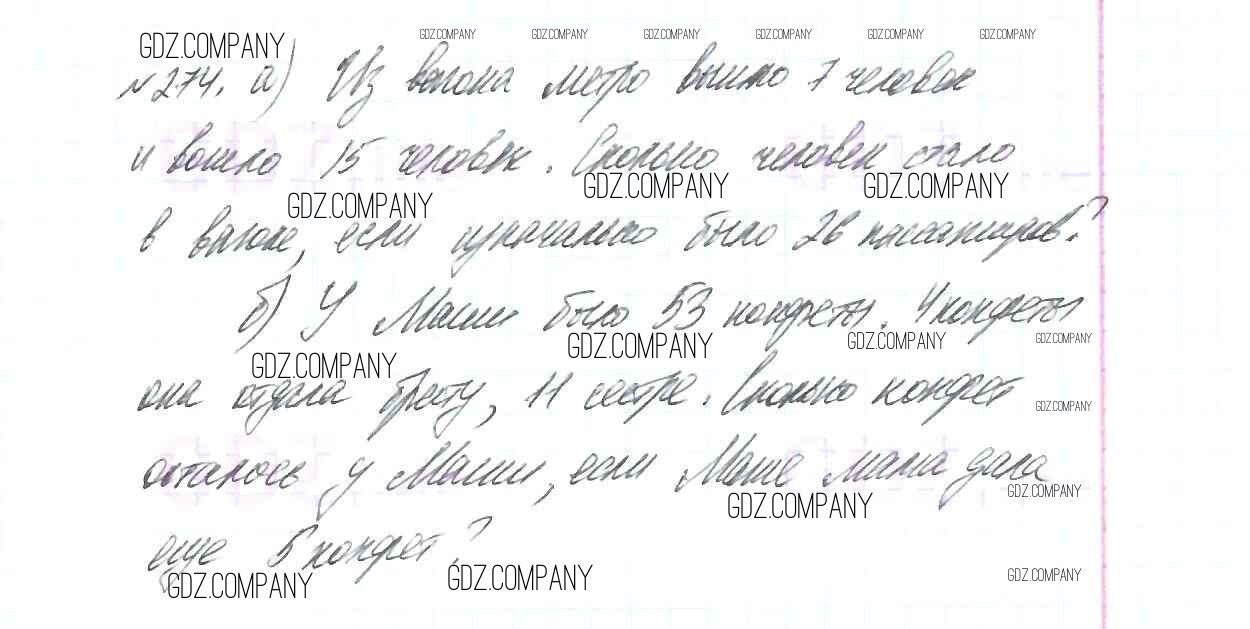 GDZ.COMPANY GDZ.COMPANY GDZ.COMPANY GDZ.COMPANY GDZ.COMPANY GDZ.COMPANY GDZ.COMPANY
№274. а) Из вагона метро вышло 7 человек
и вошло 15 человек. Сколько человек стало
GDZ.COMPANY GDZ.COMPANY GDZ.COMPANY
в вагоне, если изначально было 26 пассажиров?
б) У Маши было 53 конфеты. 4 конфеты
GDZ.COMPANY GDZ.COMPANY GDZ.COMPANY GDZ.COMPANY
она отдала брату, 11 сестре. Сколько конфет
GDZ.COMPANY
осталось у Маши, если Маше мама дала
GDZ.COMPANY GDZ.COMPANY
еще 5 конфет?
GDZ.COMPANY GDZ.COMPANY GDZ.COMPANY